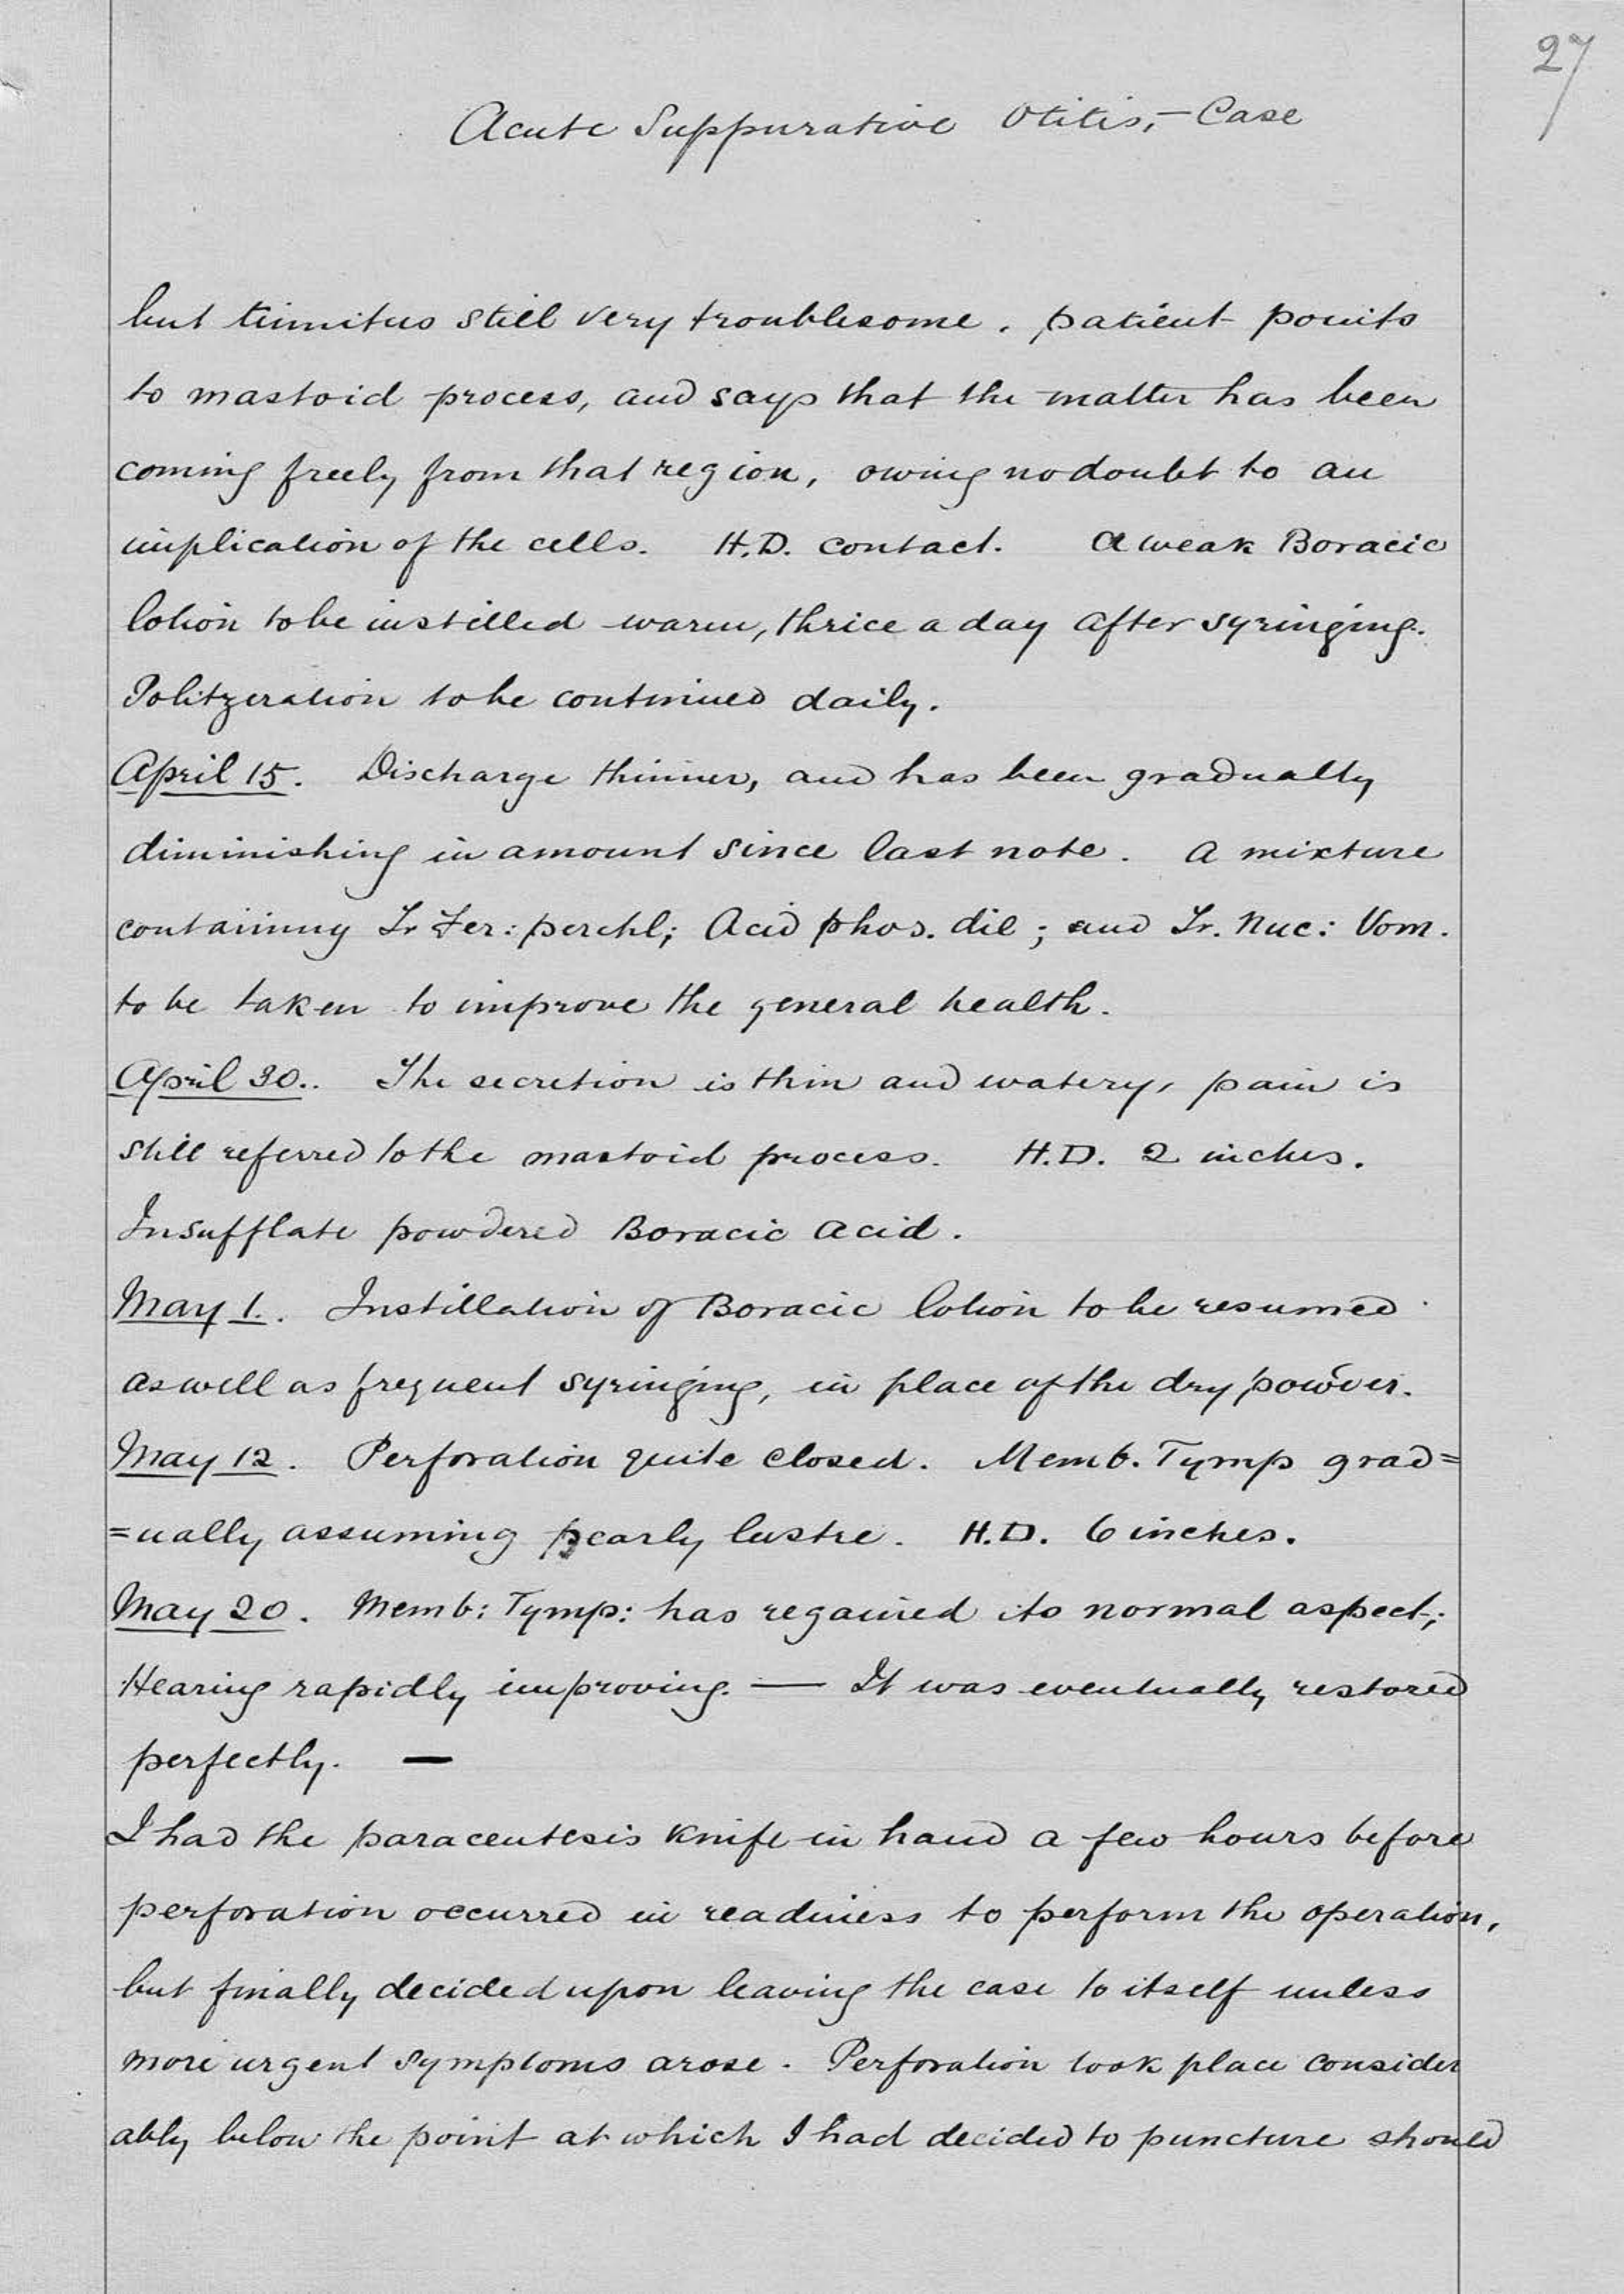 27
Acute Suppurative Otitis, - Case
but tinnitus still very troublesome. patient points
to mastoid process, and says that the matter has been
coming freely from that region, owing no doubt to an
implication of the cells. H.D. contact. A weak Boracic
lotion to be instilled warm, thrice a day after syringing.
Politzeration to be continued daily.
April 15. Discharge thinner, and has been gradually
diminishing in amount since last note. A mixture
containing Tr Fer: perchl; Acid phos. dil; and Tr. Nuc: Vom.
to be taken to improve the general health.
April 30.. The secretion is thin and watery, pain is
still referred to the mastoid process. H.D. 2 inches.
Insufflate powdered Boracic acid.
May 1.. Instillation of Boracic lotion to be resumed
as well as frequent syringing, in place of the dry powder.
May 12. Perforation quite closed. Memb. Tymp grad=
=ually assuming pearly lustre. H.D. 6 inches.
May 20. Memb: Tymp: has regained its normal aspect;
Hearing rapidly improving. — It was eventually restored
perfectly. —
I had the paracentesis knife in hand a few hours before
perforation occurred in readiness to perform the operation,
but finally decided upon leaving the case to itself unless
more urgent symptoms arose. Perforation took place consider
ably below the point at which I had decided to puncture should